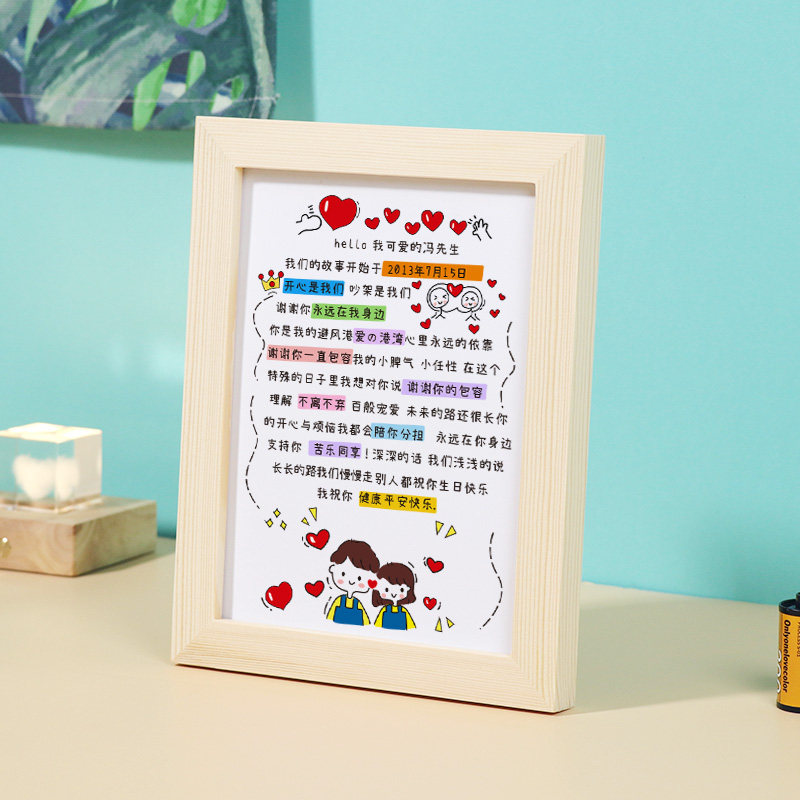 hello 我可爱的冯先生
我们的故事开始于 2013年7月15日
开心是我们 吵架是我们
谢谢你永远在我身边
你是我的避风港爱の港湾心里永远的依靠
谢谢你一直包容我的小脾气 小任性 在这个
特殊的日子里我想对你说 谢谢你的包容
理解 不离不弃 百般宠爱 未来的路还很长你
的开心与烦恼我都会陪你分担 永远在你身边
支持你 苦乐同享！深深的话 我们浅浅的说
长长的路我们慢慢走别人都祝你生日快乐
我祝你 健康平安快乐.
Onlyonelovecolor